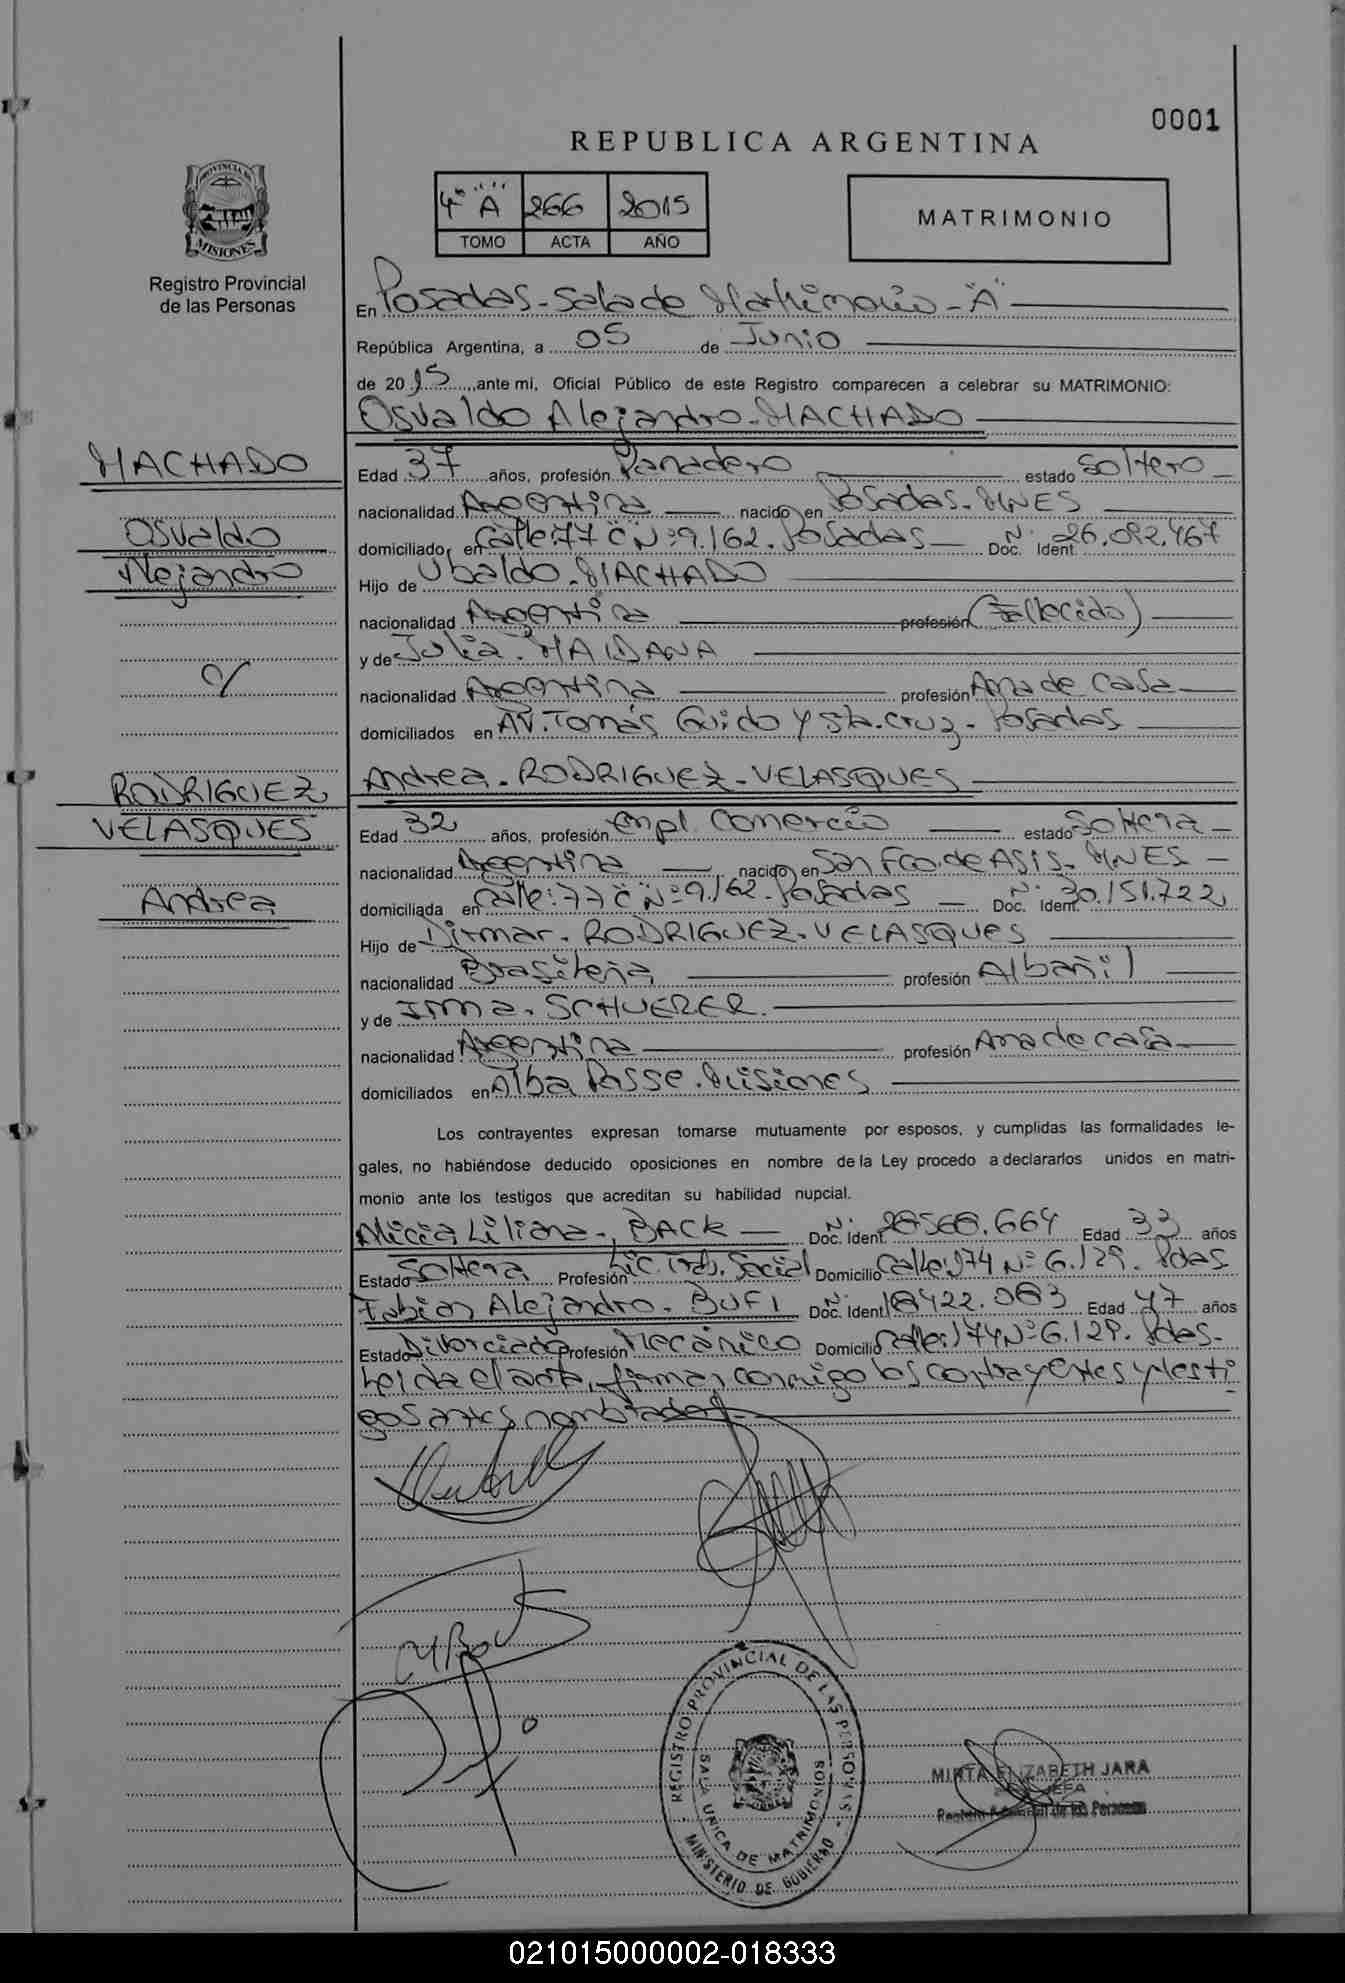 0001
REPUBLICA ARGENTINA
4º "A" 266 2015
TOMO ACTA AÑO
MATRIMONIO
PROVINCIA DE MISIONES
Registro Provincial
de las Personas
En Posadas - Sala de Matrimonio - "A"
República Argentina, a 05 de Junio
de 2015, ante mi, Oficial Público de este Registro comparecen a celebrar su MATRIMONIO:
Osvaldo Alejandro - MACHADO
MACHADO
Osvaldo
Alejandro
y
RODRIGUEZ
VELASQUES
Andrea
Edad 37 años, profesión Panadero estado Soltero
nacionalidad Argentina nacido en Posadas - MNES
domiciliado en Calle: 77 C Nº 9.162. Posadas Doc. Ident. Nº 26.092.467
Hijo de Ubaldo - MACHADO
nacionalidad Argentina profesión (Fallecido)
y de Julia - MAIDANA
nacionalidad Argentina profesión Ama de Casa
domiciliados en AV. Tomás Guido y Sta. Cruz - Posadas
Andrea - RODRIGUEZ - VELASQUES
Edad 32 años, profesión Empl. Comercio estado Soltera
nacionalidad Argentina nacido en San Fco. de Asis - MNES
domiciliada en Calle: 77 C Nº 9.162 - Posadas Doc. Ident. Nº 30.151.722
Hijo de Dirmar - RODRIGUEZ - VELASQUES
nacionalidad Brasileña profesión Albañil
y de Irma - SCHUERER
nacionalidad Argentina profesión Ama de casa
domiciliados en Alba Posse - Misiones
Los contrayentes expresan tomarse mutuamente por esposos, y cumplidas las formalidades le-
gales, no habiéndose deducido oposiciones en nombre de la Ley procedo a declararlos unidos en matri-
monio ante los testigos que acreditan su habilidad nupcial.
Alicia Liliana - BACK Doc. Ident. Nº 28568.664 Edad 33 años
Estado Soltera Profesión Lic. Trab. Social Domicilio Calle: 174 Nº 6.129. Pdas
Fabian Alejandro - BUFI Doc. Ident. Nº 18422.083 Edad 47 años
Estado Divorciado Profesión Mecánico Domicilio Calle: 174 Nº 6.129. Pdas.
Leida el acta, firman conmigo los contrayentes y testi
gos antes nombrados
REGISTRO PROVINCIAL DE LAS PERSONAS
SALA UNICA DE MATRIMONIOS
MINISTERIO DE GOBIERNO
MIRTA ELIZABETH JARA
JEFA
de las Personas
021015000002-018333